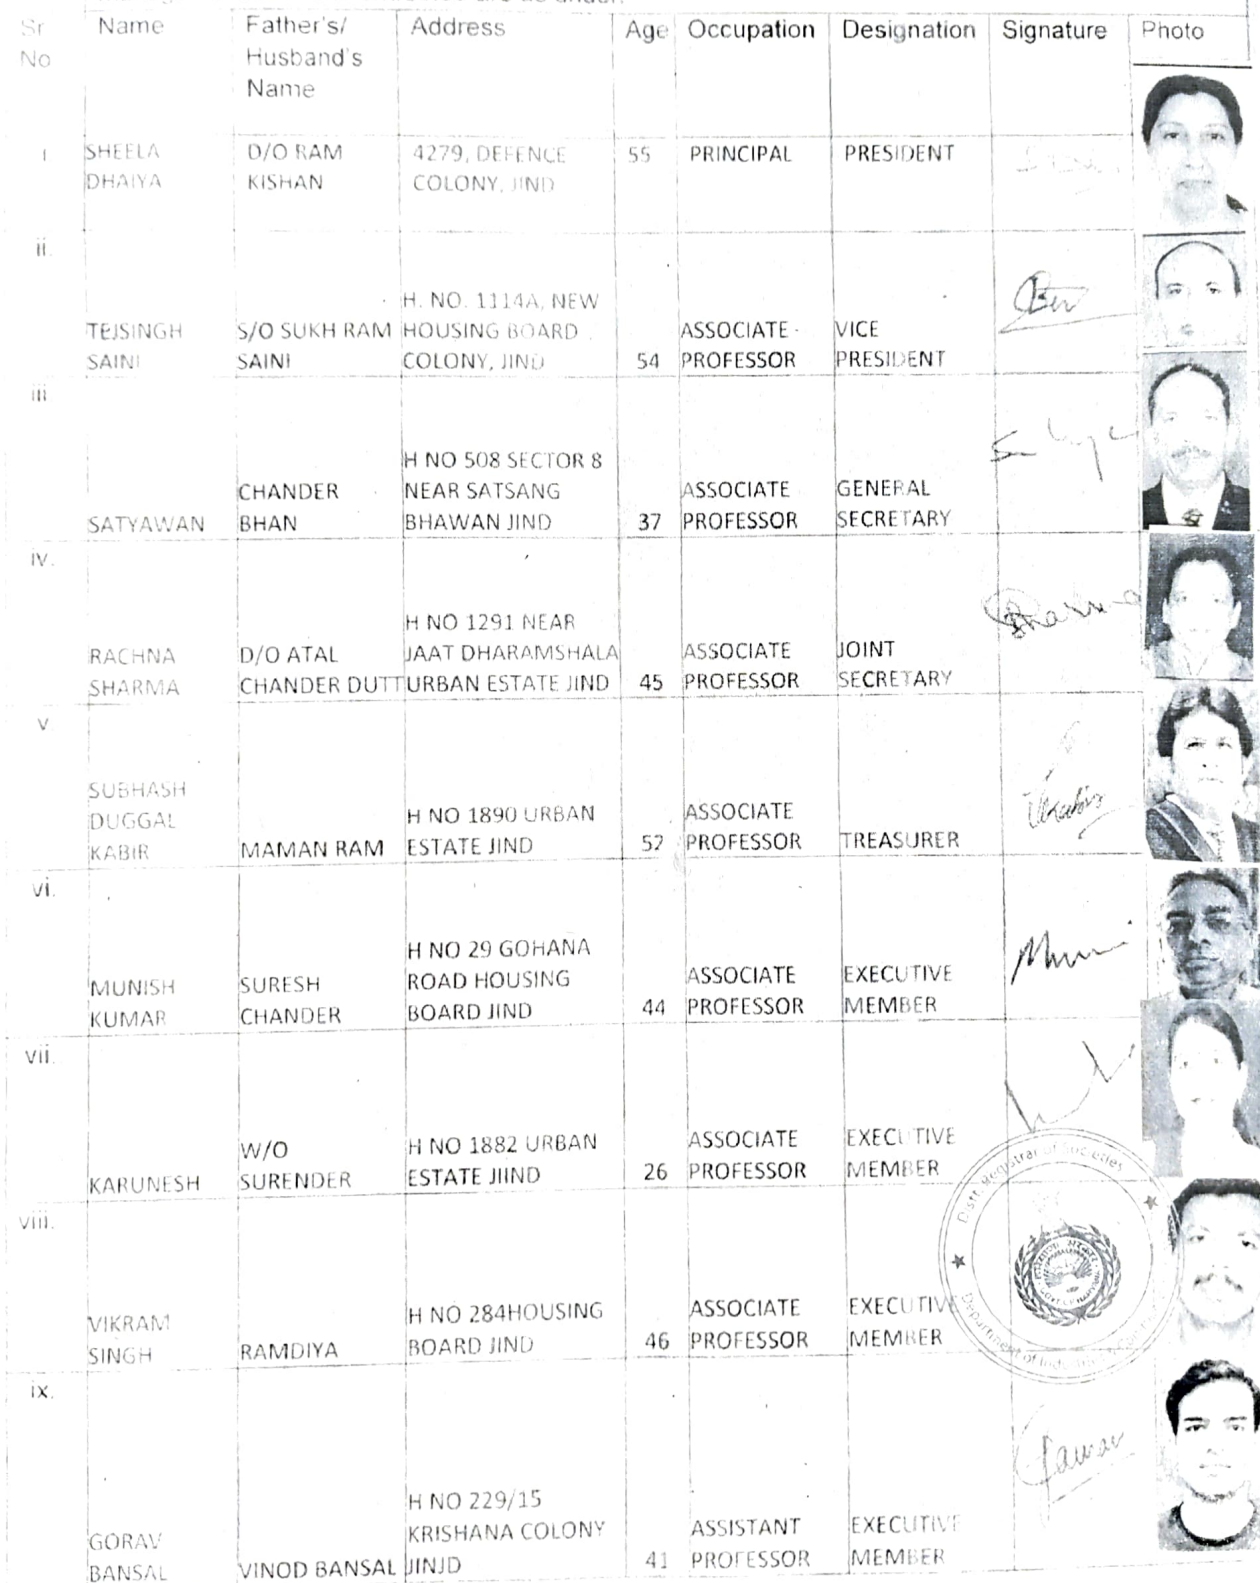 Sr No | Name | Father's/ Husband's Name | Address | Age | Occupation | Designation | Signature | Photo
i | SHEELA DHAIYA | D/O RAM KISHAN | 4279, DEFENCE COLONY, JIND | 55 | PRINCIPAL | PRESIDENT
ii. | TEJSINGH SAINI | S/O SUKH RAM SAINI | H. NO. 1114A, NEW HOUSING BOARD COLONY, JIND | 54 | ASSOCIATE PROFESSOR | VICE PRESIDENT
iii | SATYAWAN | CHANDER BHAN | H NO 508 SECTOR 8 NEAR SATSANG BHAWAN JIND | 37 | ASSOCIATE PROFESSOR | GENERAL SECRETARY
iv. | RACHNA SHARMA | D/O ATAL CHANDER DUTT | H NO 1291 NEAR JAAT DHARAMSHALA URBAN ESTATE JIND | 45 | ASSOCIATE PROFESSOR | JOINT SECRETARY | Sharma
v | SUBHASH DUGGAL KABIR | MAMAN RAM | H NO 1890 URBAN ESTATE JIND | 52 | ASSOCIATE PROFESSOR | TREASURER
vi. | MUNISH KUMAR | SURESH CHANDER | H NO 29 GOHANA ROAD HOUSING BOARD JIND | 44 | ASSOCIATE PROFESSOR | EXECUTIVE MEMBER
vii. | KARUNESH | W/O SURENDER | H NO 1882 URBAN ESTATE JIIND | 26 | ASSOCIATE PROFESSOR | EXECUTIVE MEMBER
viii. | VIKRAM SINGH | RAMDIYA | H NO 284HOUSING BOARD JIND | 46 | ASSOCIATE PROFESSOR | EXECUTIVE MEMBER
Distt. Registrar of Societies
Department of Industries
ix. | GORAV BANSAL | VINOD BANSAL | H NO 229/15 KRISHANA COLONY JINJD | 41 | ASSISTANT PROFESSOR | EXECUTIVE MEMBER | Gaurav